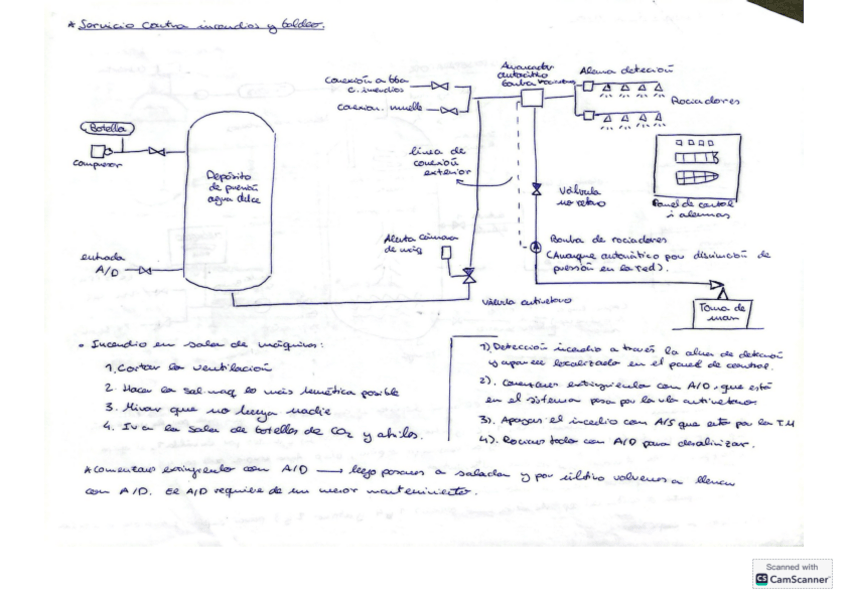 * Servicio contra incendios y baldeo.
conexión a bba
c. incendios
conexion. muelle
Arrancador
automático
bomba rociadores
Alarma detección
Rociadores
Botella
compresor
Depósito
de presión
agua dulce
linea de
conexión
exterior
Válvula
no retorno
Panel de control
y alarmas
entrada
A/D
Alerta cámara
de máq
Bomba de rociadores
(Arranque automático por disminución de
presión en la red).
válvula antiretorno
Toma de
mar
• Incendio en sala de máquinas:
1. Cortar la ventilación
2. Hacer la sal. maq lo más hermética posible
3. Mirar que no haya nadie
4. Ir a la sala de botellas de CO2 y abrilos.
1) Detección incendio a través la alarma de detección
y aparece localizado en el panel de control.
2). Comenzamos extinguiendo con A/D, que está
en el sistema pasa por la vla antiretorno
3). Apagas el incedio con A/S que entra por la T.M
4). Rociamos todo con A/D para desalinizar.
* Comenzamos extinguiendo con A/D → luego pasamos a salada y por último volvemos a llenar
con A/D. El A/D requiere de un menor mantenimiento.
Scanned with
CS CamScanner